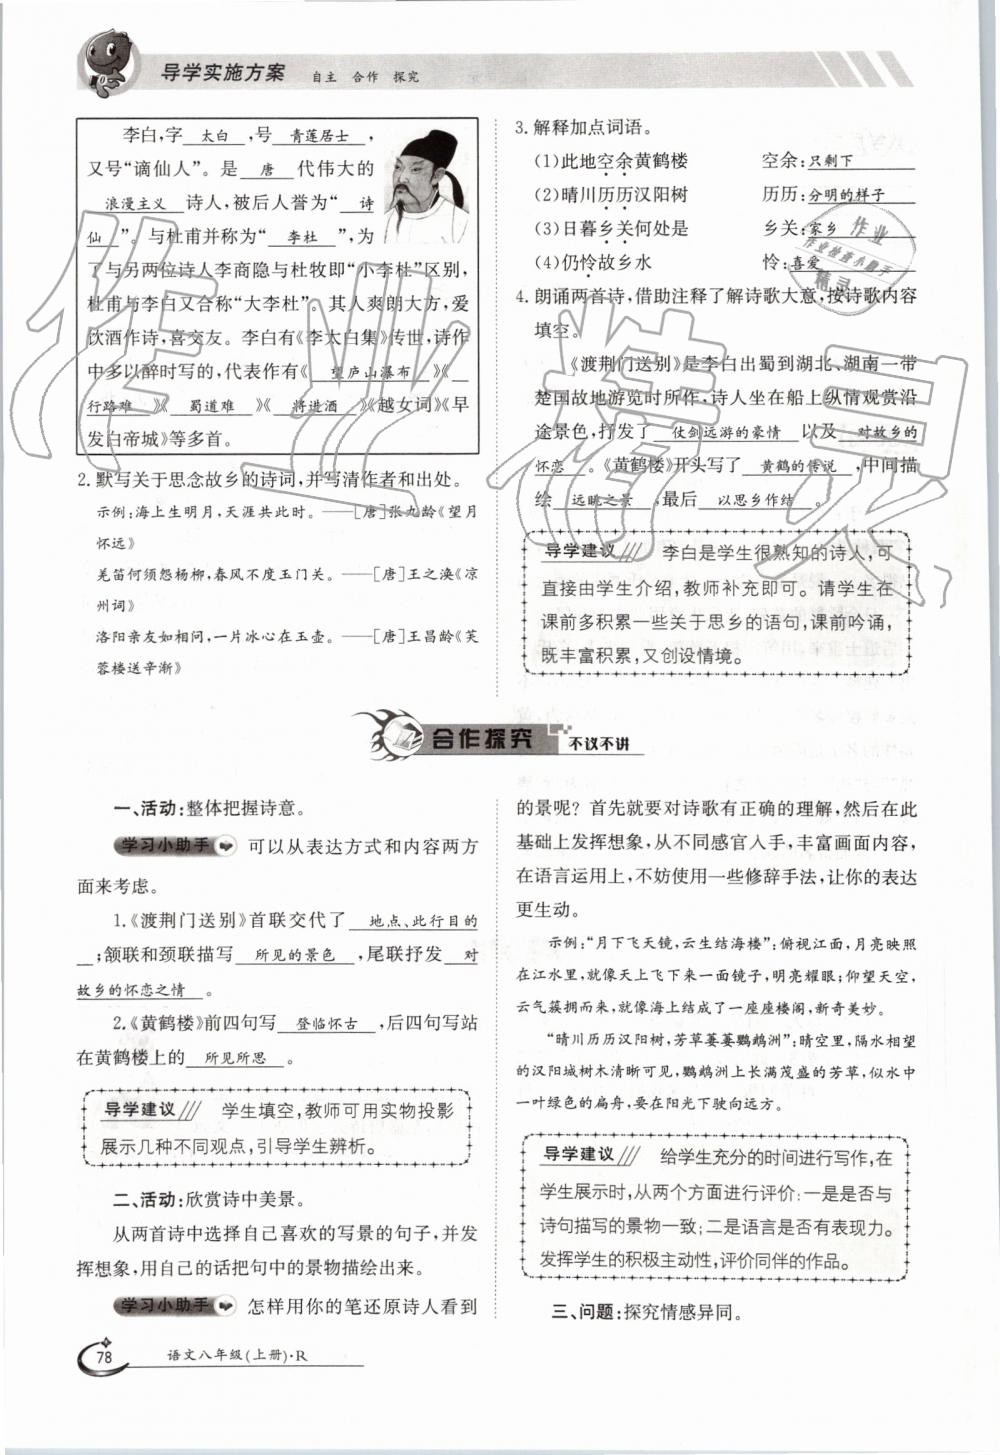 导学实施方案 自主 合作 探究
李白,字 太白 ,号 青莲居士 ,
又号“谪仙人”。是 唐 代伟大的
浪漫主义 诗人,被后人誉为“ 诗
仙 ”。与杜甫并称为“ 李杜 ”,为
了与另两位诗人李商隐与杜牧即“小李杜”区别,
杜甫与李白又合称“大李杜”。其人爽朗大方,爱
饮酒作诗,喜交友。李白有《李太白集》传世,诗作
中多以醉时写的,代表作有《 望庐山瀑布 》《
行路难 》《 蜀道难 》《 将进酒 》《越女词》《早
发白帝城》等多首。
2. 默写关于思念故乡的诗词,并写清作者和出处。
示例:海上生明月,天涯共此时。——[唐]张九龄《望月
怀远》
羌笛何须怨杨柳,春风不度玉门关。——[唐]王之涣《凉
州词》
洛阳亲友如相问,一片冰心在玉壶。——[唐]王昌龄《芙
蓉楼送辛渐》
3. 解释加点词语。
(1)此地空余黄鹤楼 空余:只剩下
(2)晴川历历汉阳树 历历:分明的样子
(3)日暮乡关何处是 乡关:家乡
(4)仍怜故乡水 怜:喜爱
4. 朗诵两首诗,借助注释了解诗歌大意,按诗歌内容
填空。
《渡荆门送别》是李白出蜀到湖北、湖南一带
楚国故地游览时所作,诗人坐在船上纵情观赏沿
途景色,抒发了 仗剑远游的豪情 以及 对故乡的
怀恋 。《黄鹤楼》开头写了 黄鹤的传说 ,中间描
绘 远眺之景 ,最后 以思乡作结 。
导学建议 李白是学生很熟知的诗人,可
直接由学生介绍,教师补充即可。请学生在
课前多积累一些关于思乡的语句,课前吟诵,
既丰富积累,又创设情境。
合作探究 不议不讲
一、活动:整体把握诗意。
学习小助手 可以从表达方式和内容两方
面来考虑。
1.《渡荆门送别》首联交代了 地点、此行目的
;颔联和颈联描写 所见的景色 ,尾联抒发 对
故乡的怀恋之情 。
2.《黄鹤楼》前四句写 登临怀古 ,后四句写站
在黄鹤楼上的 所见所思 。
导学建议 学生填空,教师可用实物投影
展示几种不同观点,引导学生辨析。
二、活动:欣赏诗中美景。
从两首诗中选择自己喜欢的写景的句子,并发
挥想象,用自己的话把句中的景物描绘出来。
学习小助手 怎样用你的笔还原诗人看到
的景呢?首先就要对诗歌有正确的理解,然后在此
基础上发挥想象,从不同感官入手,丰富画面内容,
在语言运用上,不妨使用一些修辞手法,让你的表达
更生动。
示例:“月下飞天镜,云生结海楼”:俯视江面,月亮映照
在江水里,就像天上飞来一面镜子,明亮耀眼;仰望天空,
云气簇拥而来,就像海上结成了一座座楼阁,新奇美妙。
“晴川历历汉阳树,芳草萋萋鹦鹉洲”:晴空里,隔水相望
的汉阳城树木清晰可见,鹦鹉洲上长满茂盛的芳草,似水中
一叶绿色的扁舟,要在阳光下驶向远方。
导学建议 给学生充分的时间进行写作,在
学生展示时,从两个方面进行评价:一是是否与
诗句描写的景物一致;二是语言是否有表现力。
发挥学生的积极主动性,评价同伴的作品。
三、问题:探究情感异同。
78 语文八年级(上册)·R
作业精灵
作业
作业检查小助手
精灵